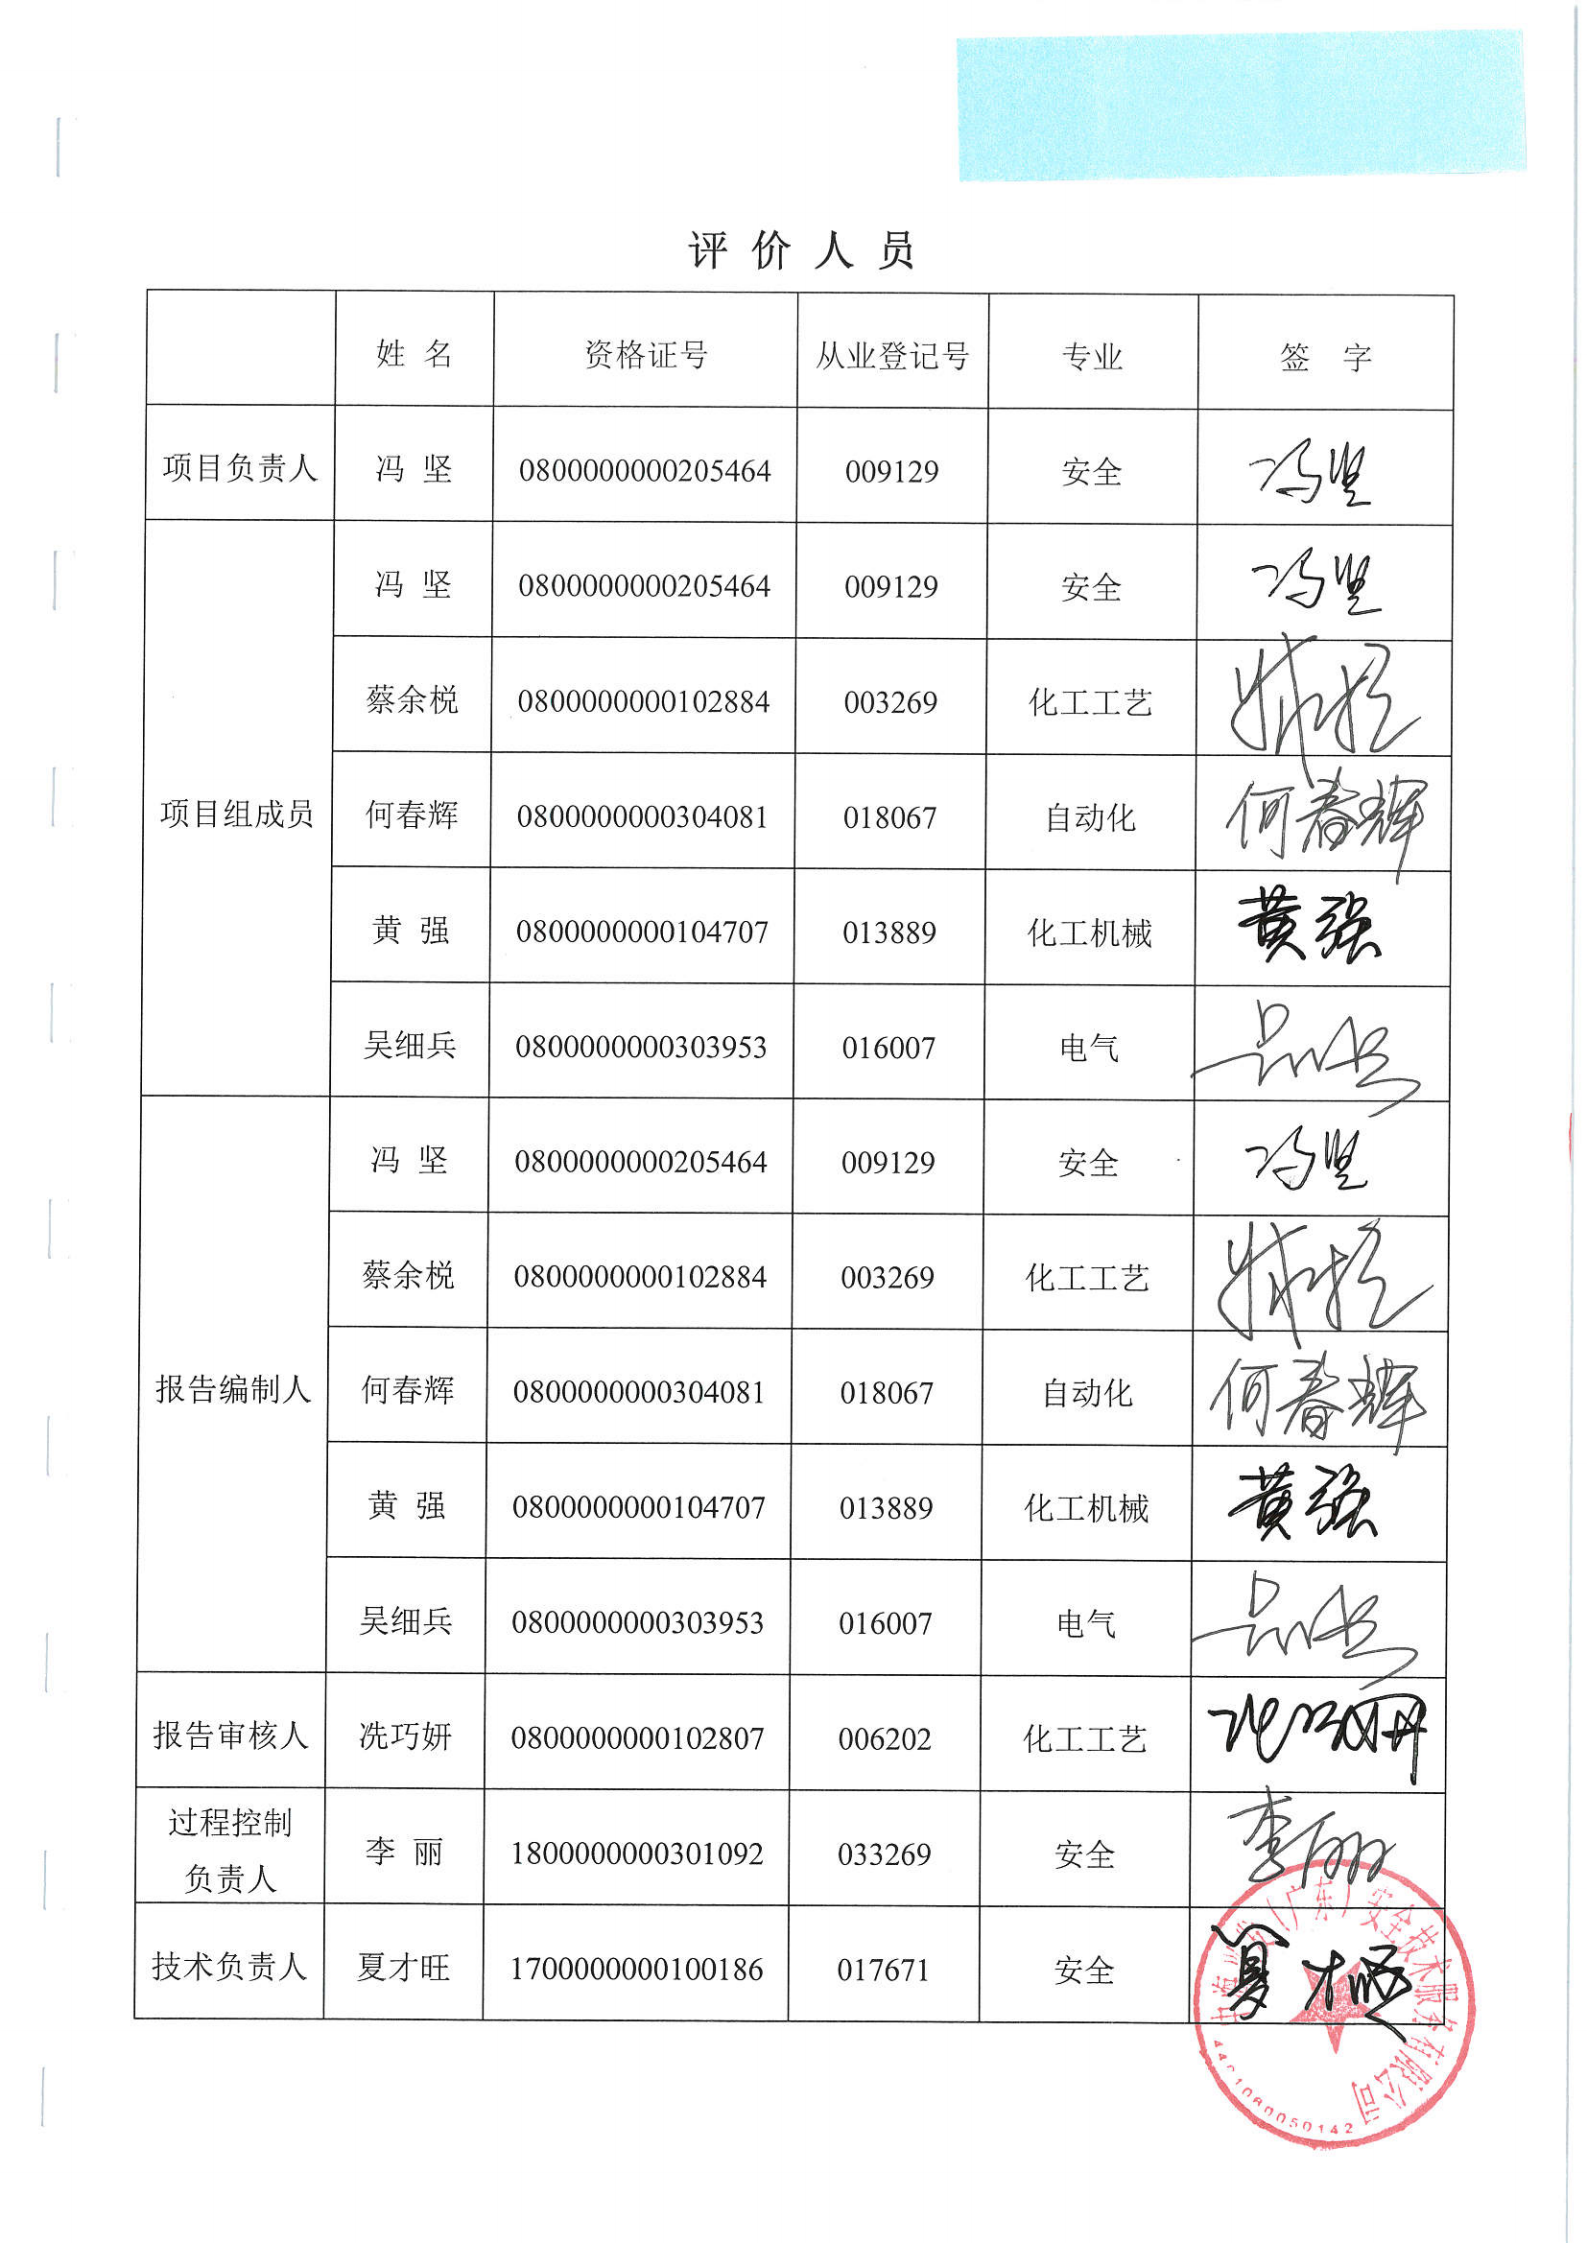 评价人员
姓 名 资格证号 从业登记号 专业 签 字
项目负责人 冯 坚 0800000000205464 009129 安全 冯坚
项目组成员
冯 坚 0800000000205464 009129 安全 冯坚
蔡余棁 0800000000102884 003269 化工工艺
何春辉 0800000000304081 018067 自动化 何春辉
黄 强 0800000000104707 013889 化工机械 黄强
吴细兵 0800000000303953 016007 电气
报告编制人
冯 坚 0800000000205464 009129 安全 冯坚
蔡余棁 0800000000102884 003269 化工工艺
何春辉 0800000000304081 018067 自动化 何春辉
黄 强 0800000000104707 013889 化工机械 黄强
吴细兵 0800000000303953 016007 电气
报告审核人 冼巧妍 0800000000102807 006202 化工工艺
过程控制
负责人
李 丽 1800000000301092 033269 安全 李丽
技术负责人 夏才旺 1700000000100186 017671 安全 夏才旺
(广东)安全技术服务有限公司